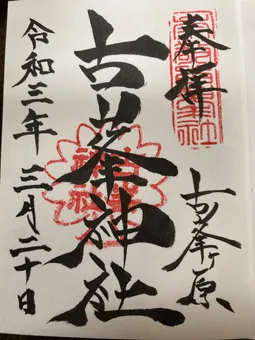 奉拝
古峯ヶ原
古峯神社
令和三年 三月二十日